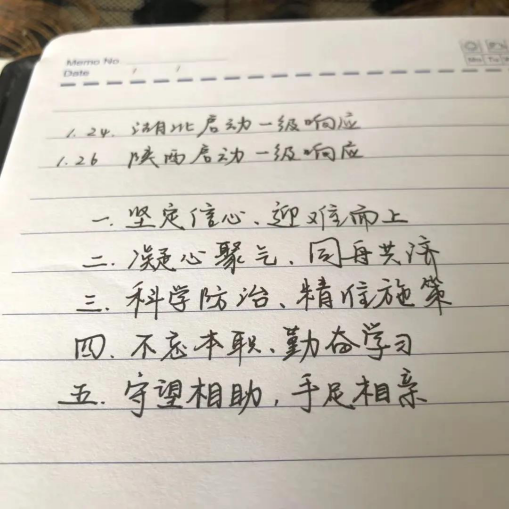 Memo No
Date / /
1.24. 湖北启动一级响应
1.26 陕西启动一级响应
一. 坚定信心、迎难而上
二. 凝心聚气、同舟共济
三. 科学防治、精准施策
四. 不忘本职、勤奋学习
五. 守望相助，手足相亲